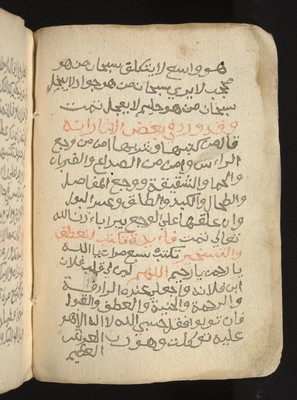 هو واسع لا يتكلف سبحان من هو
محتجب لا يرى سبحان من هو جواد لا يبخل
سبحان من هو حليم لا يعجل تمت
وقد ورد في بعض الاثار انه
قال من كتبها وشربها امن من وجع
الراس وامن من الصداع والضربان
والحما والشقيقة ووجع المفاصل
والطحال والكبد والطلق وعسر البول
وان علقها على الوجع يبرا باذن الله
تعالى تمت فايدة تكتب للعطف
والتسخير تكتب سبع مرات يا الله
يا رحمن يا رحيم اللهم لين قلب فلان
ابن فلانه واجعل عنده الرافة
والرحمة والحنية والعطف والقبول
فان تولوا فقل حسبي الله لا اله الا هو
عليه توكلت وهو رب العرش
العظيم